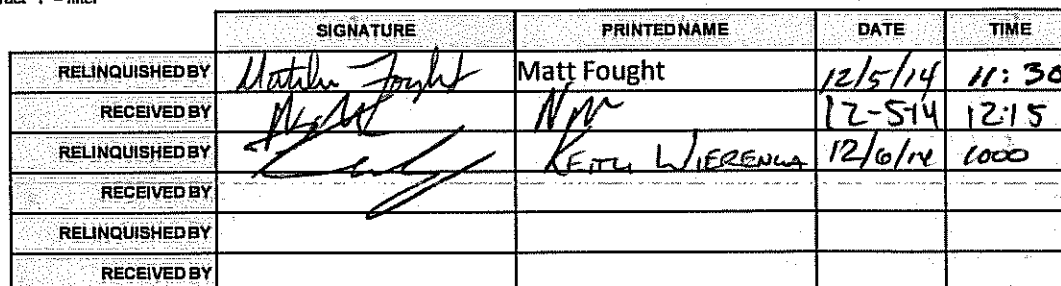 SIGNATURE PRINTED NAME DATE TIME
RELINQUISHED BY Matt Fought 12/5/14 11:30
RECEIVED BY 12-5-14 12:15
RELINQUISHED BY KEITH WIERENGA 12/6/14 1000
RECEIVED BY
RELINQUISHED BY
RECEIVED BY